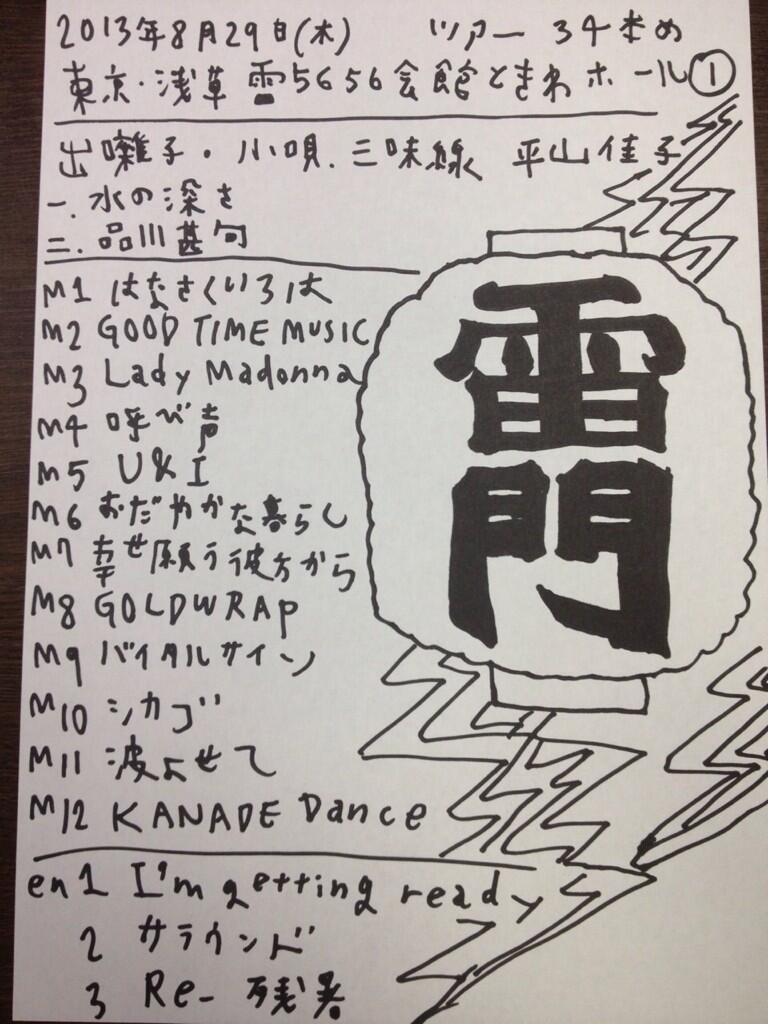 2013年8月29日(木) ツアー 34本め
東京・浅草 雷5656会館ときわホール①
出囃子・小唄.三味線 平山佳子
一.水の深さ
二.品川甚句
M1 はなさくいろは
M2 GOOD TIME MUSIC
M3 Lady Madonna
M4 呼び声
M5 U&I
M6 おだやかな暮らし
M7 幸せ願う彼方から
M8 GOLDWRAP
M9 バイタルサイン
M10 シカゴ
M11 波よせて
M12 KANADE Dance
en1 I'm getting ready
2 サラウンド
3 Re-残暑
雷門